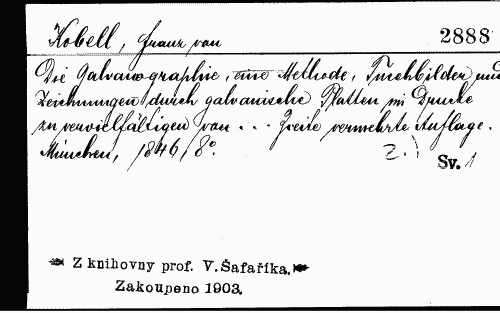 Kobell, Franz von
2888
Die Galvanographie, eine Methode, Tuschbilder und
Zeichnungen durch galvanische Platten im Drucke
zu vervielfältigen von ... Zweite vermehrte Auflage.
München, 1846, 8°.
2.)
Sv. 1
Z knihovny prof. V. Šafaříka.
Zakoupeno 1903.